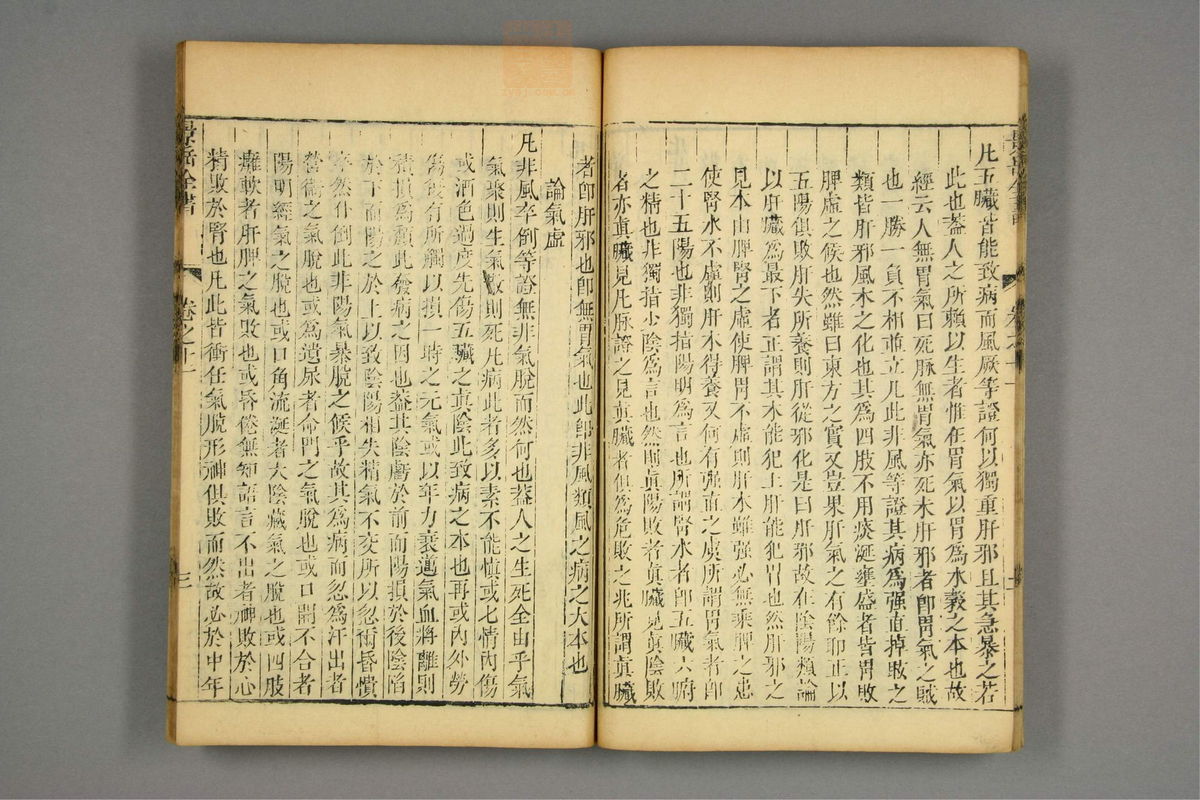 凡五臟皆能致病而風厥等證何以獨重肝邪且其急暴之若
此也葢人之所賴以生者惟在胃氣以胃為水穀之本也故
經云人無胃氣曰死脉無胃氣亦死木肝邪者卽胃氣之賊
也一勝一負不相並立凡此非風等證其病為强直掉眩之
類皆肝邪風木之化也其為四肢不用痰涎壅盛者皆胃敗
脾虛之候也然雖曰東方之實又豈果肝氣之有餘耶正以
五陽俱敗肝失所養則肝從邪化是曰肝邪故在陰陽類論
以肝臟為最下者正謂其木能犯土肝能犯胃也然肝邪之
見本由脾腎之虛使脾胃不虛則肝木雖强必無乘脾之患
使腎水不虛則肝木得養又何有强直之虞所謂胃氣者卽
二十五陽也非獨指陽明為言也所謂腎水者卽五臟六腑
之精也非獨指少陰為言也然則眞陽敗者眞臟見眞陰敗
者亦眞臟見凡脉證之見眞臟者俱為危敗之兆所謂眞臟
景岳全書
卷之十一
三
者卽肝邪也卽無胃氣也此卽非風類風之病之大本也
論氣虛
凡非風卒倒等證無非氣脫而然何也葢人之生死全由乎氣
氣聚則生氣散則死凡病此者多以素不能慎或七情內傷
或酒色過度先傷五臟之眞陰此致病之本也再或內外勞
傷復有所觸以損一時之元氣或以年力衰邁氣血將離則
積損為頹此發病之因也葢其陰虧於前而陽損於後陰陷
於下而陽乏於上以致陰陽相失精氣不交所以忽爾昏憒
卒然仆倒此非陽氣暴脫之候乎故其為病而忽為汗出者
營衛之氣脫也或為遺尿者命門之氣脫也或口開不合者
陽明經氣之脫也或口角流涎者太陰藏氣之脫也或四肢
癱軟者肝脾之氣敗也或昏倦無知語言不出者神敗於心
精敗於腎也凡此皆衝任氣脫形神俱敗而然故必於中年
景岳全書
卷之十一
三